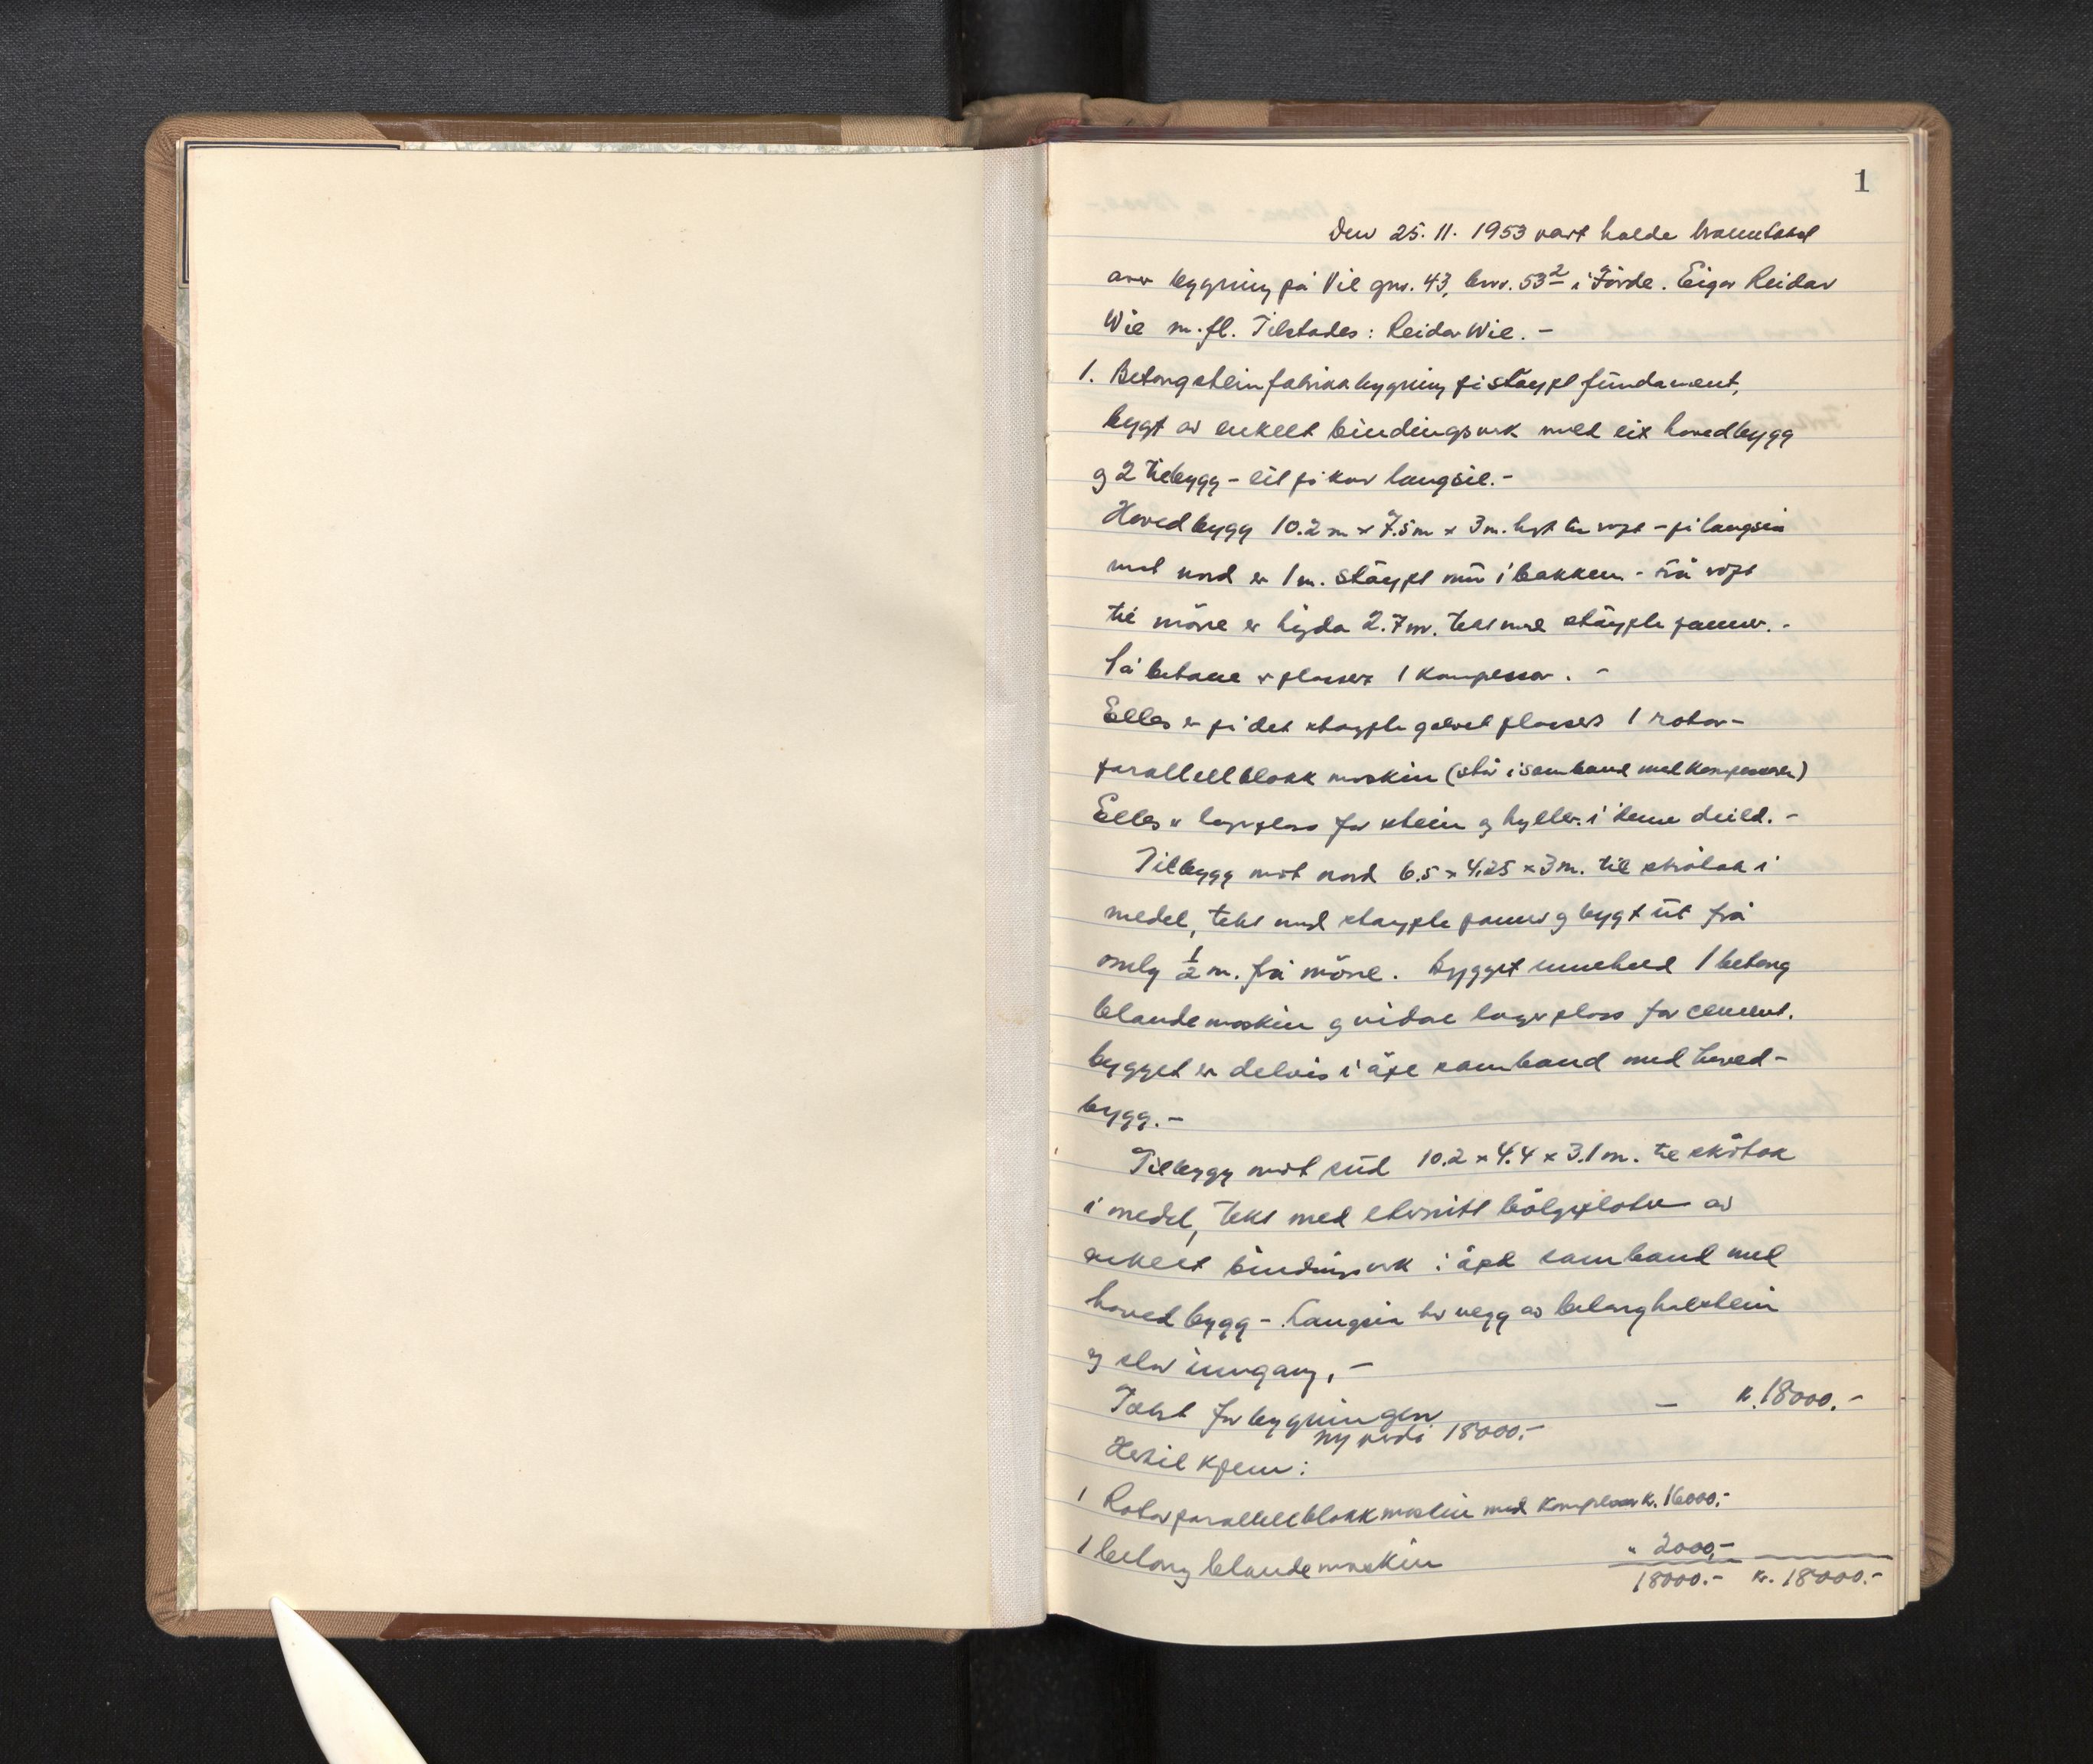 1
Den 25.11. 1953 vart halde branntakst
over bygning på Vie gnr. 43, bnr. 53² i Förde. Eigar Reidar
Wie m.fl. Tilstades: Reidar Wie. -
1. Betongsteinfabrikkbygning på stöypt fundament,
bygt av enkelt bindingsverk med eit hovedbygg
og 2 tilbygg - eit på kvar langsie. -
Hovedbygg 10.2 m x 7.5 m x 3 m. högt til röst - på langsia
mot nord er 1 m. stöypt mur i bakken - frå röst
til möne er högda 2.7 m. tekt med stöypte panner. -
På betane er plassert 1 kompessor. -
Elles er på det stöypte golvet plassert 1 rotor-
parallellblokk maskin (står i samband med kompessoren)
Elles er lagerplass for stein og hyller i denne deild. -
Tilbygg mot nord 6.5 x 4.25 x 3 m. til skråtak i
medel, tekt med stöypte panner og bygt ut frå
omlag ½ m. frå möne. Bygget inneheld 1 betong
blandemaskin og vidare lagerplass for cement.
bygget er delvis i åpe samband med hoved-
bygg. -
Tilbygg mot süd 10.2 x 4.4 x 3.1 m. til skråtak
i medel, tekt med eternitt bölgeplater av
enkelt bindingsverk i åpe samband med
hovedbygg - Langsia har vegg av betongholstein
og stor inngang, -
Takst for bygningen - kr. 18000.-
ny verdi 18000.-
Hertil kjem:
1 Rotorparallellblokkmaskin med kompessor kr. 16000.-
1 betong blandemaskin " 2000,-
18000.- kr. 18000.-